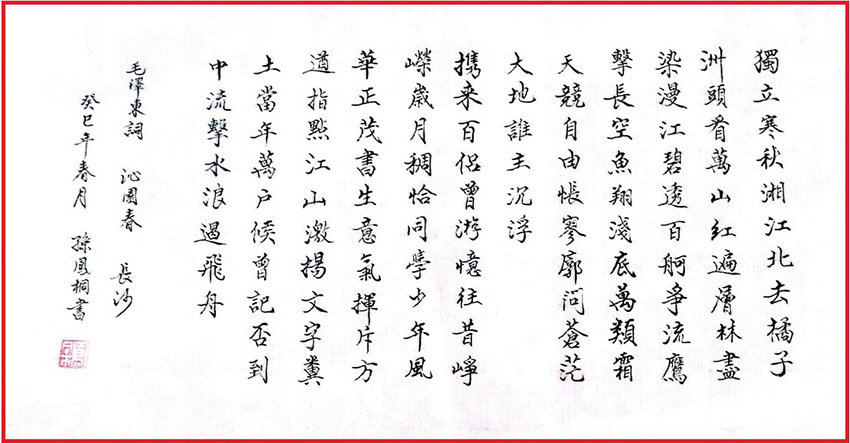 獨立寒秋湘江北去橘子
洲頭看萬山紅遍層林盡
染漫江碧透百舸爭流鷹
擊長空魚翔淺底萬類霜
天競自由悵寥廓問蒼茫
大地誰主沉浮
携来百侣曾游憶往昔崢
嶸歲月稠恰同學少年風
華正茂書生意氣揮斥方
遒指點江山激揚文字糞
土當年萬户侯曾記否到
中流擊水浪遏飛舟
毛澤東詞 沁園春 長沙
癸巳年春月 孫鳳桐書